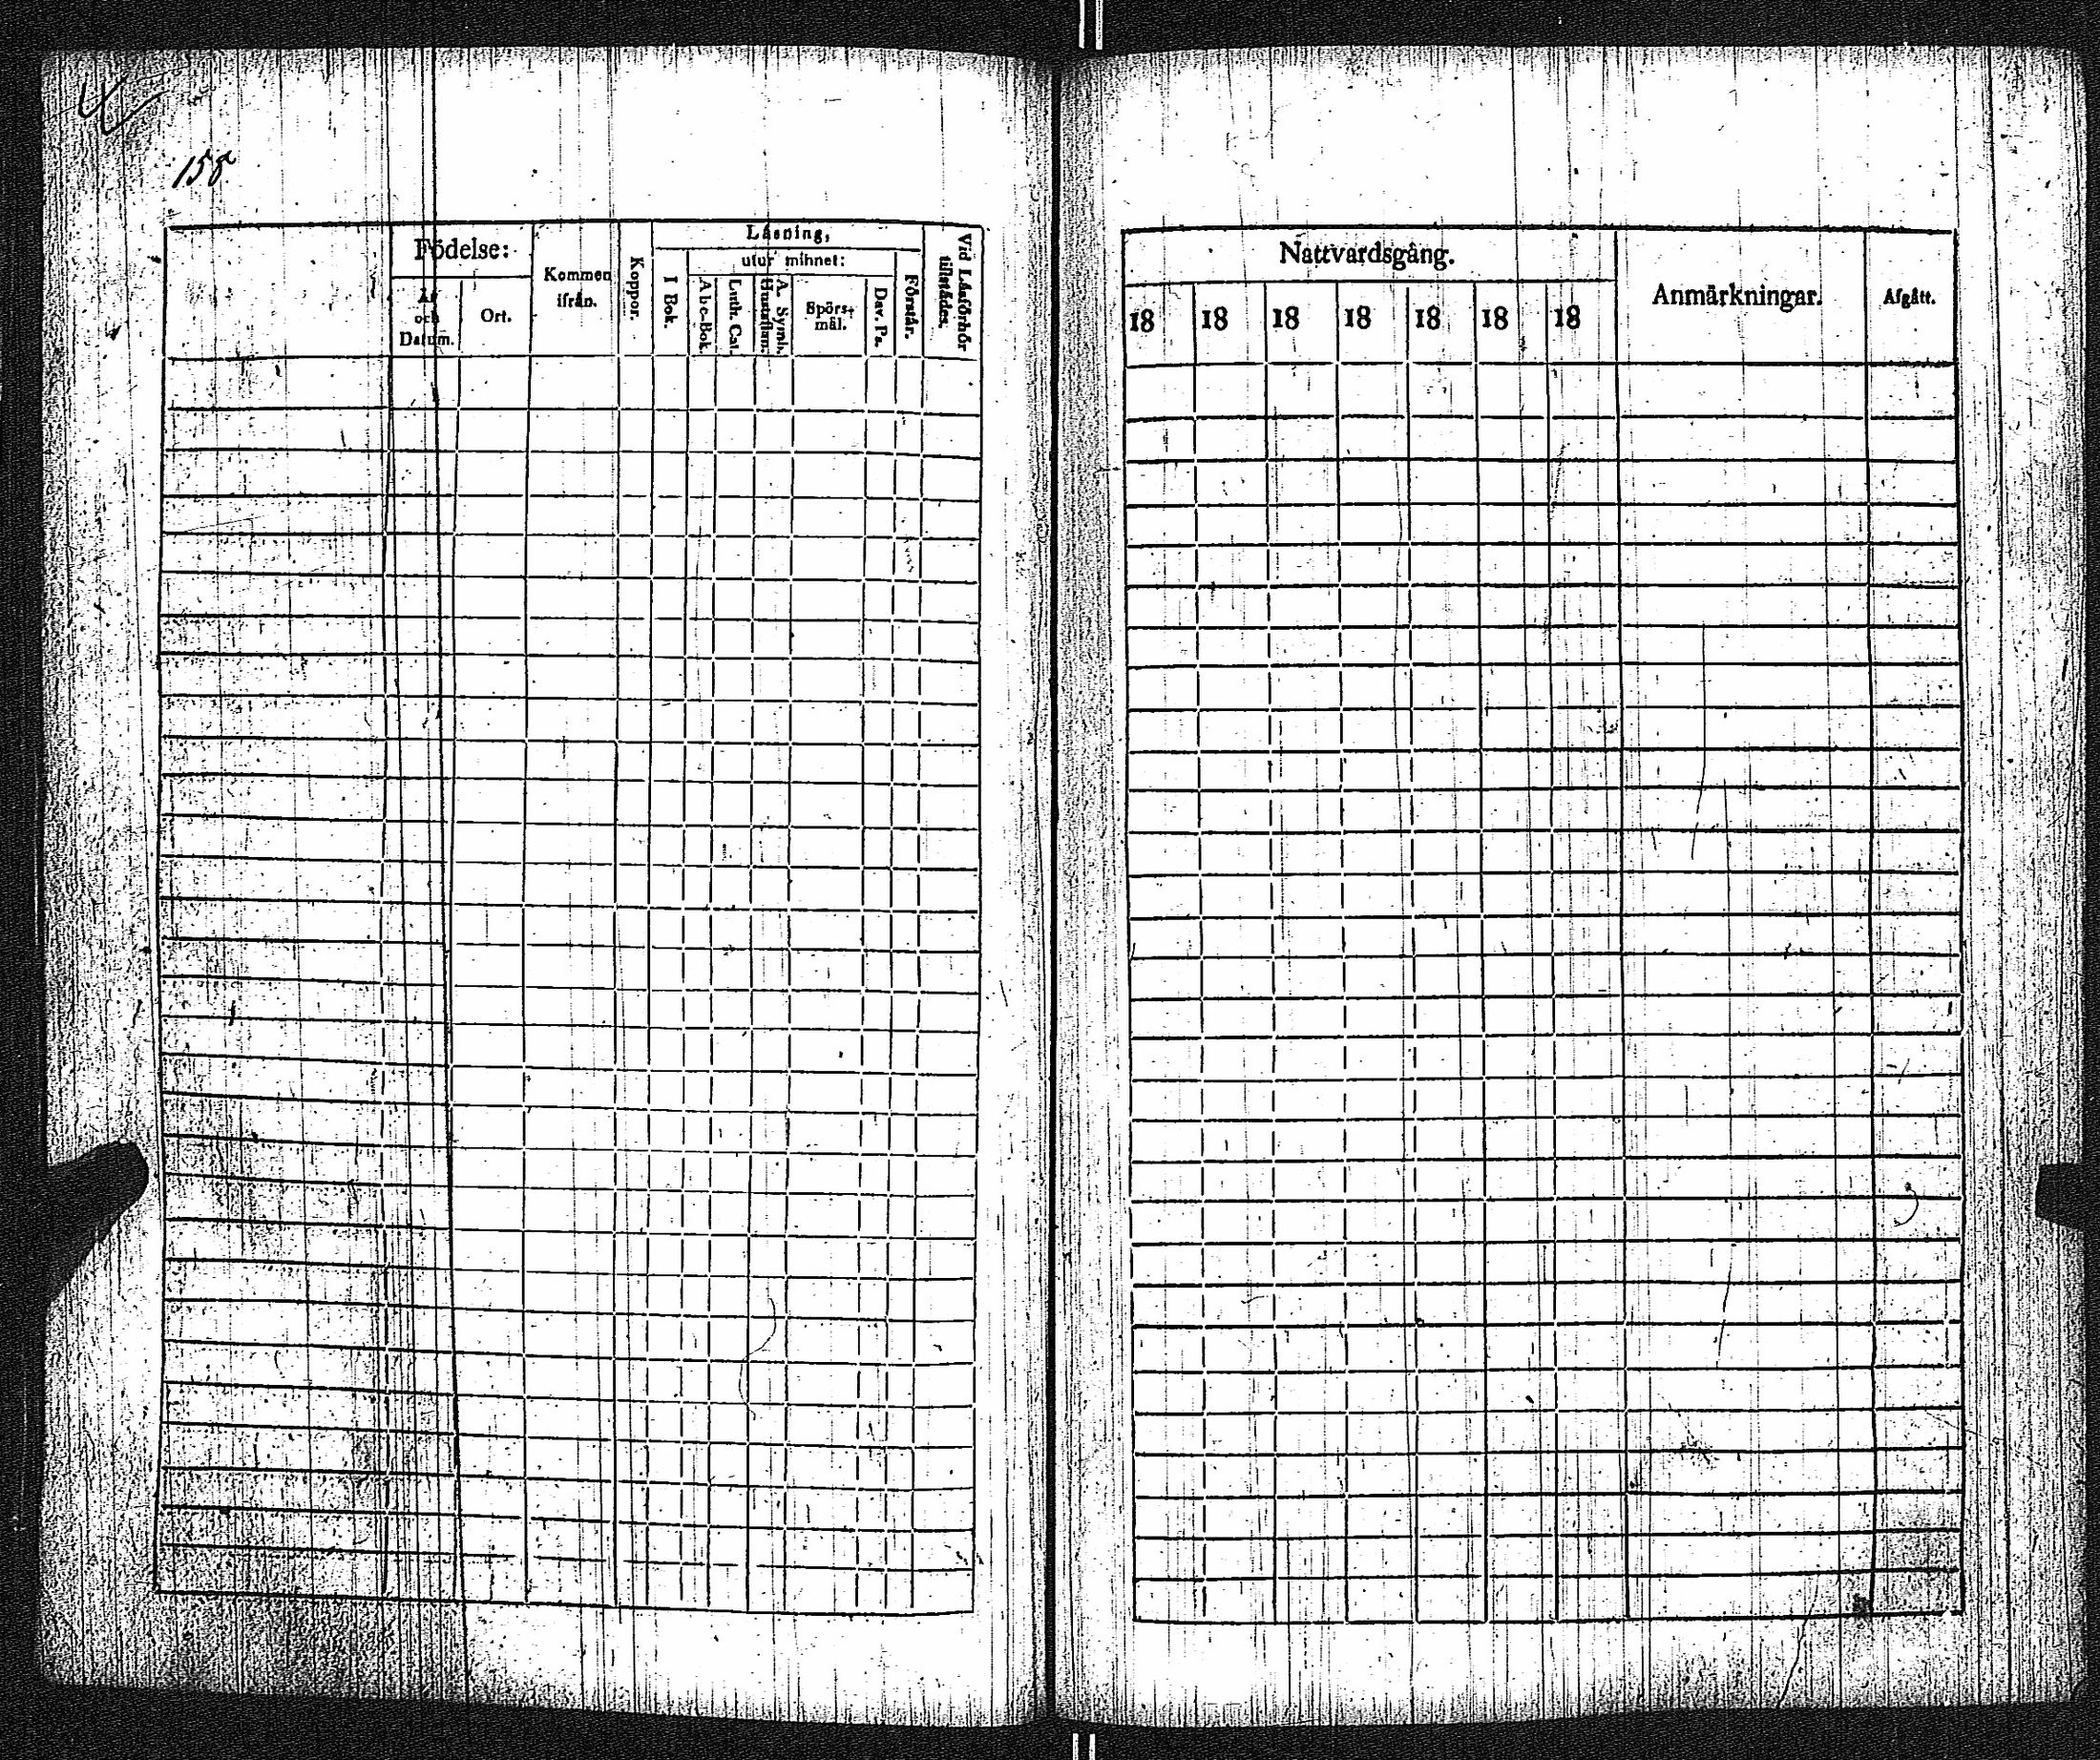 158
Födelse:
År och Datum.
Ort.
Kommen ifrån.
Koppor.
Läsning,
I Bok.
utur minnet:
Abc-Bok.
Luth. Cat.
A. Symb. Hustaflan.
Spörs-mål.
Dav. Ps.
Förstår.
Vid Läsförhör tillstädes.
Nattvardsgång.
18 18 18 18 18 18 18
Anmärkningar.
Afgått.